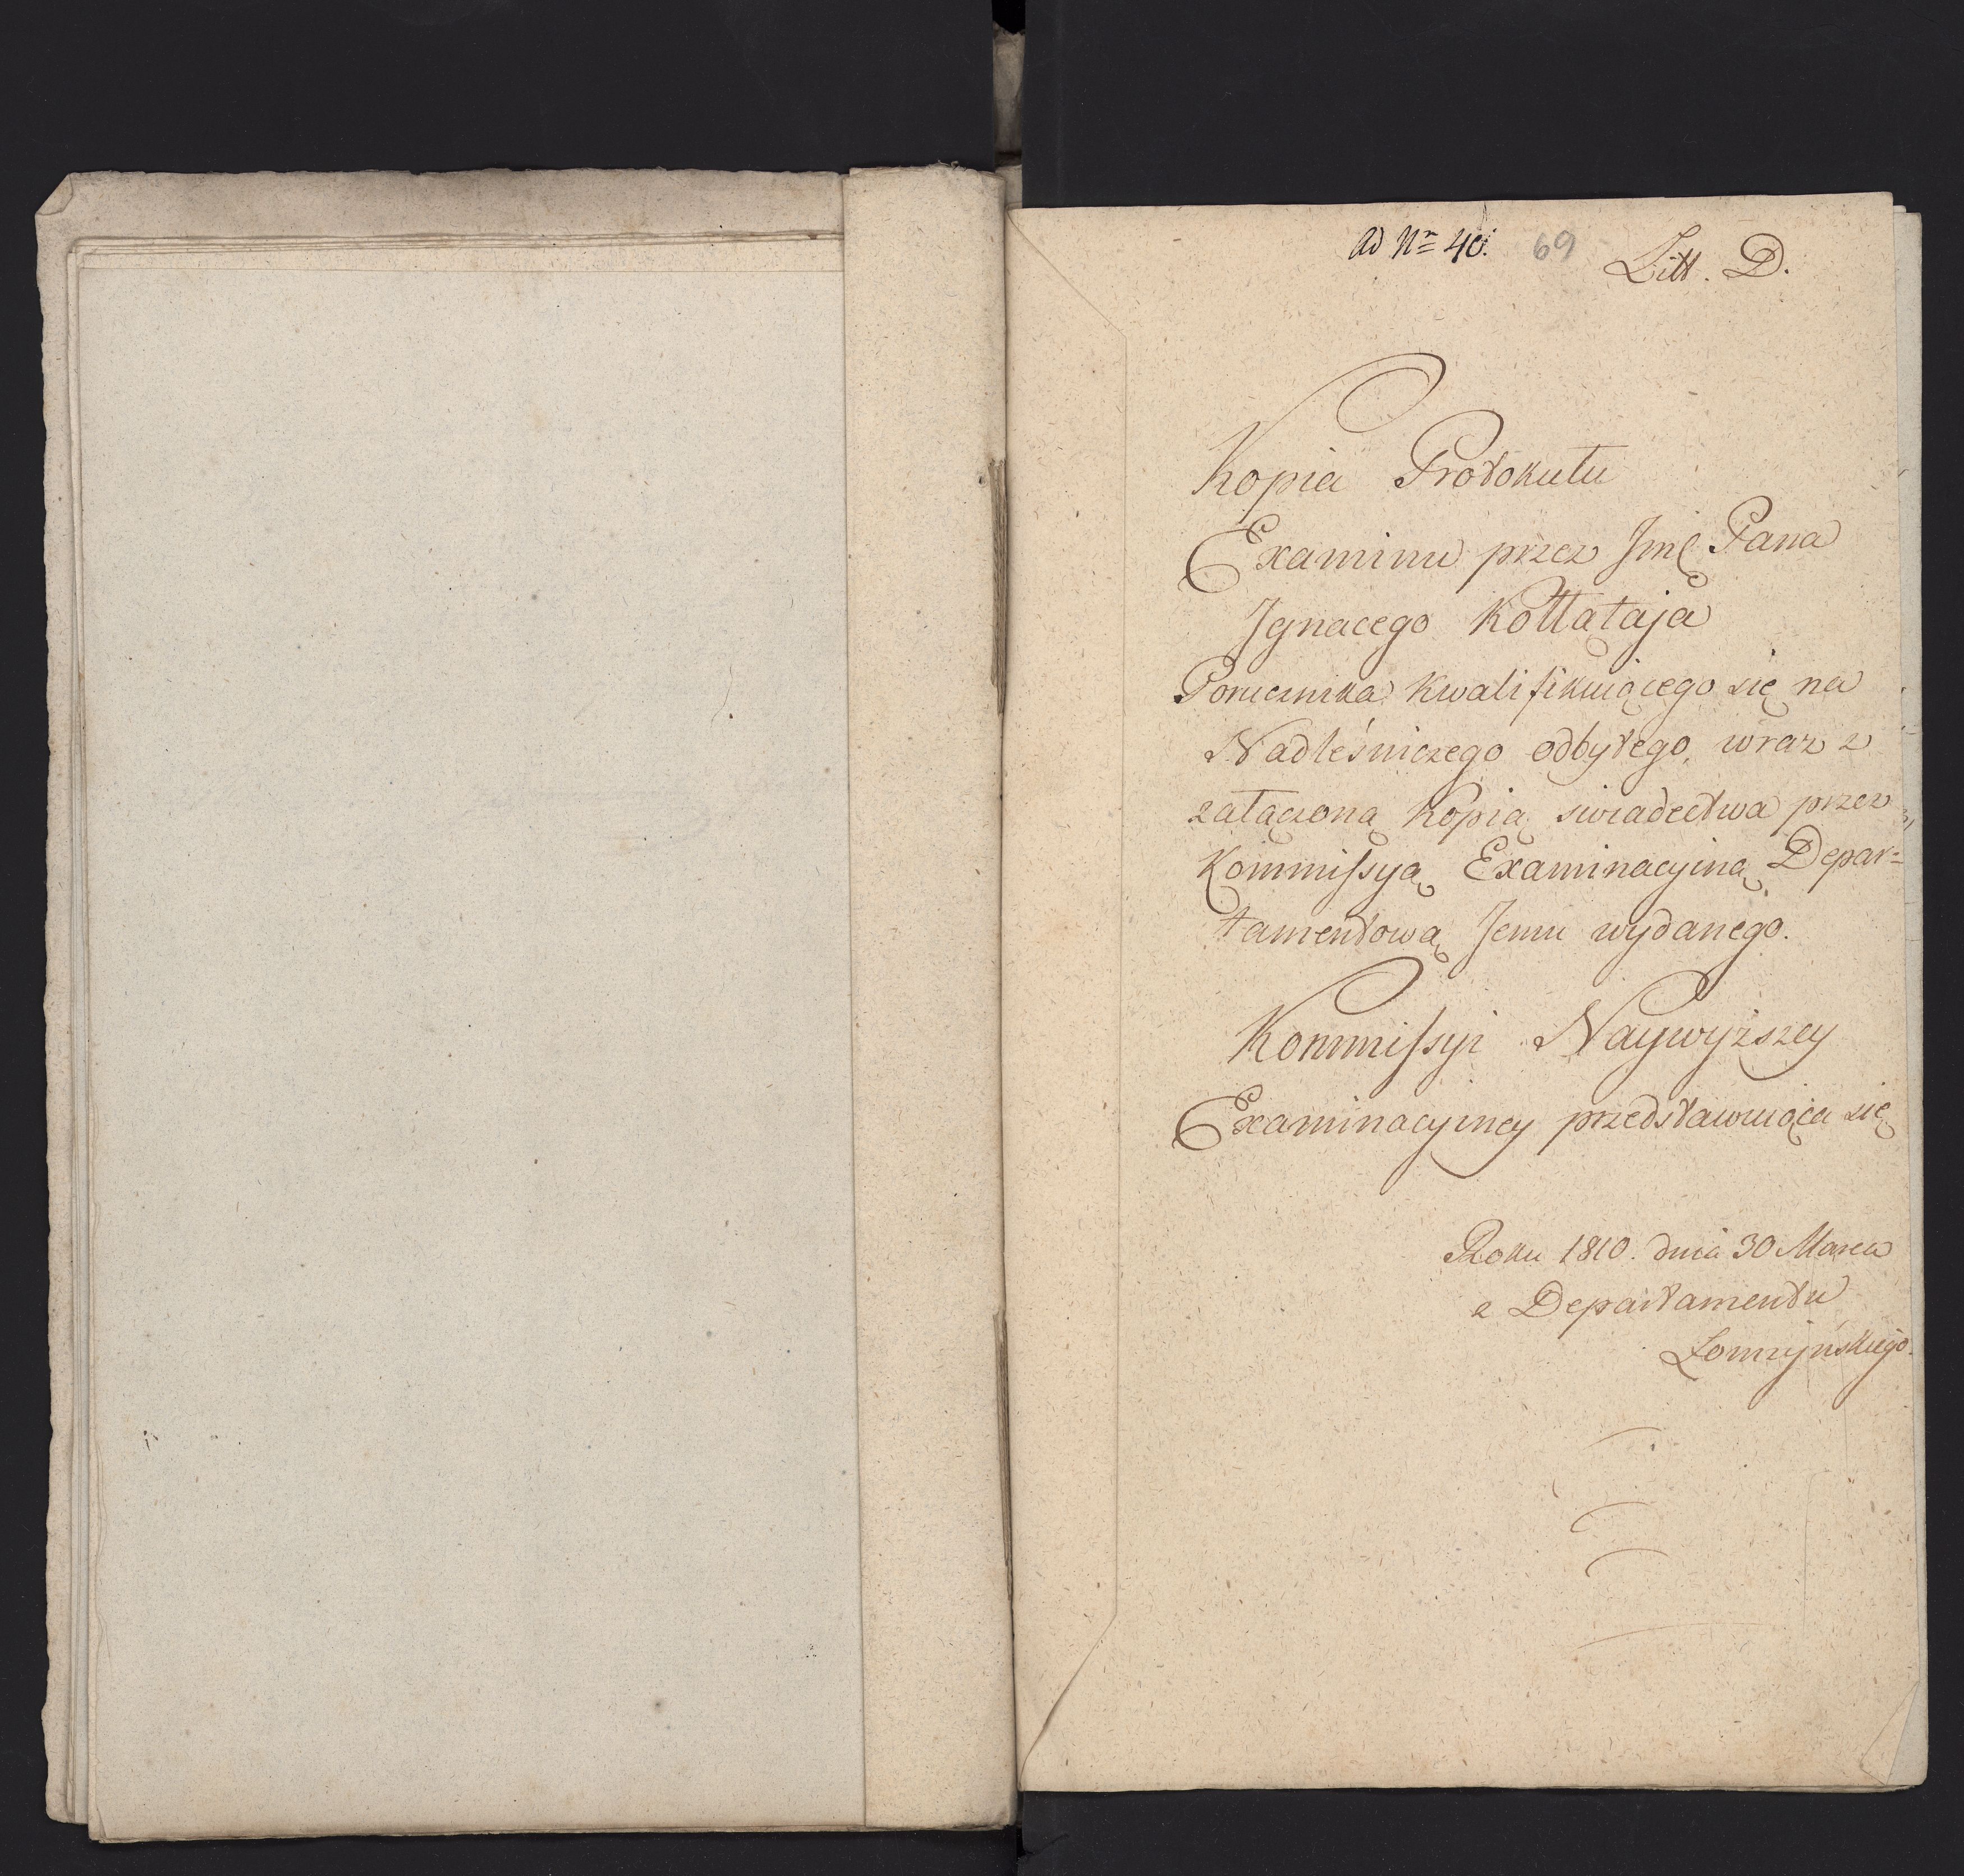 ad Nr 40. 69 Litt. D.
Kopia Protokułu
Examinu przez Jmć Pana
Ignacego Kołłątaja
Porucznika kwalifikuiącego się na
Nadleśniczego odbytego, wraz z
załączoną kopią swiadectwa przez
Kommissyą Examinacyiną Depar=
tamentową Jemu wydanego.
Kommissyi Naywyższey
Examinacyiney przedstawuiąca się
Roku 1810. dnia 30 Marca
z Departamentu
Łomżyńskiego.